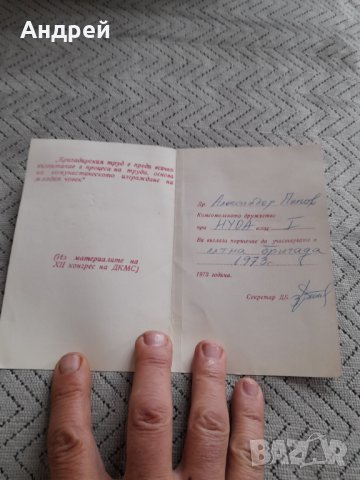 Андрей
„Бригадирския труд е преди всичко
възпитание в процеса на труда, основа
на комунистическото изграждане на
младия човек"
(Из материалите на
XII конгрес на ДКМС)
Др. Александър Попов
Комсомолското дружество
при НУОА клас I
Ви възлага поръчение да участвувате в
лятна бригада
1973 г.
1973 година.
Секретар ДК:
BAZAR
bg